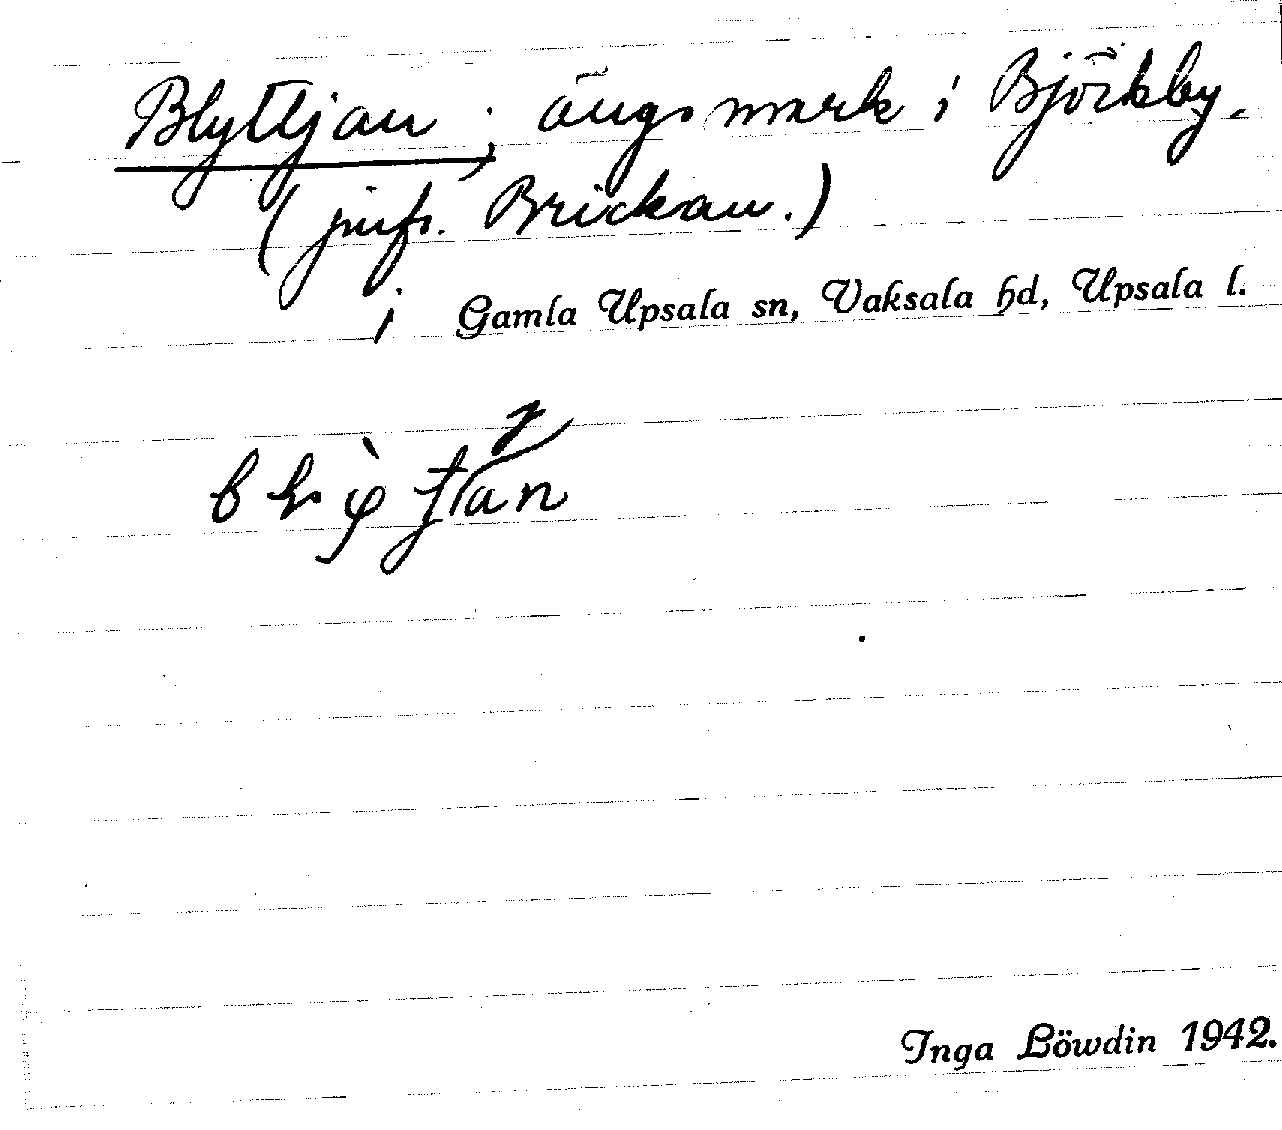 Blyttjan; ängsmark i Björkby.
(jmfr. Brickan.)
i Gamla Upsala sn, Vaksala hd, Upsala l.
Inga Löwdin 1942.